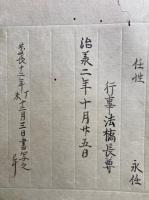 任性 永任
行事法橋長尊
治承二年十月廿五日
慶長十二年丁未十二月三日書写之